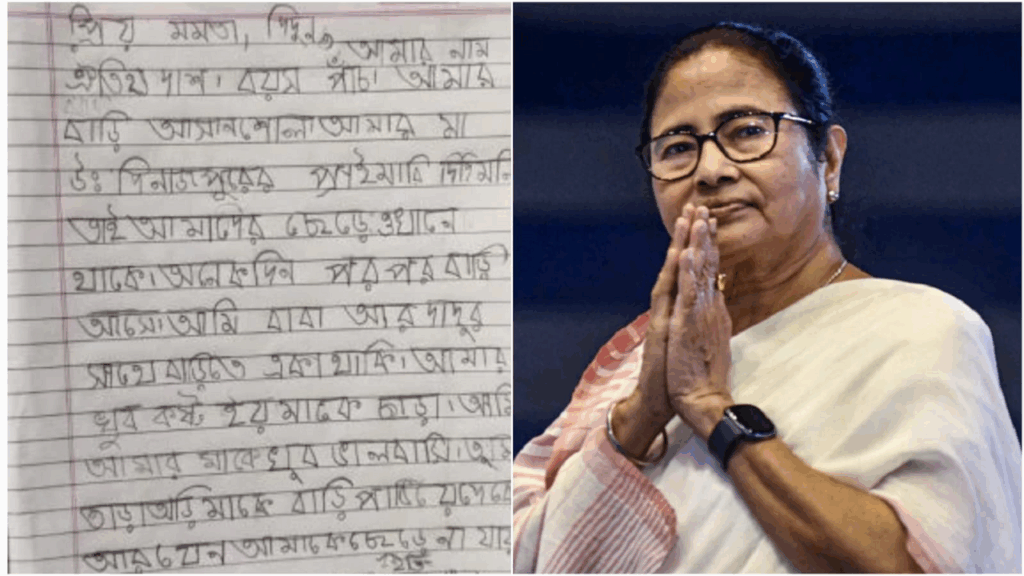 প্রিয় মমতা, দিদুন,
আমার নাম
ঐতিহ্য দাশ। বয়স পাঁচ। আমার
বাড়ি আসানশোল। আমার মা
উঃ দিনাজপুরের প্রাইমারি দিদিমনি
তাই আমাদের ছেড়ে ওখানে
থাকে। অনেক দিন পর পর বাড়ী
আসে। আমি বাবা আর দাদুর
সাথে বাড়িতে একা থাকি। আমার
খুব কষ্ট হয় মাকে ছাড়া। আমি
আমার মাকে খুব ভালবাসি। তুমি
তাড়াতাড়ি মাকে বাড়ি পাঠিয়ে দেবে
আর যেন আমাকে ছেড়ে না যায়
ইতি